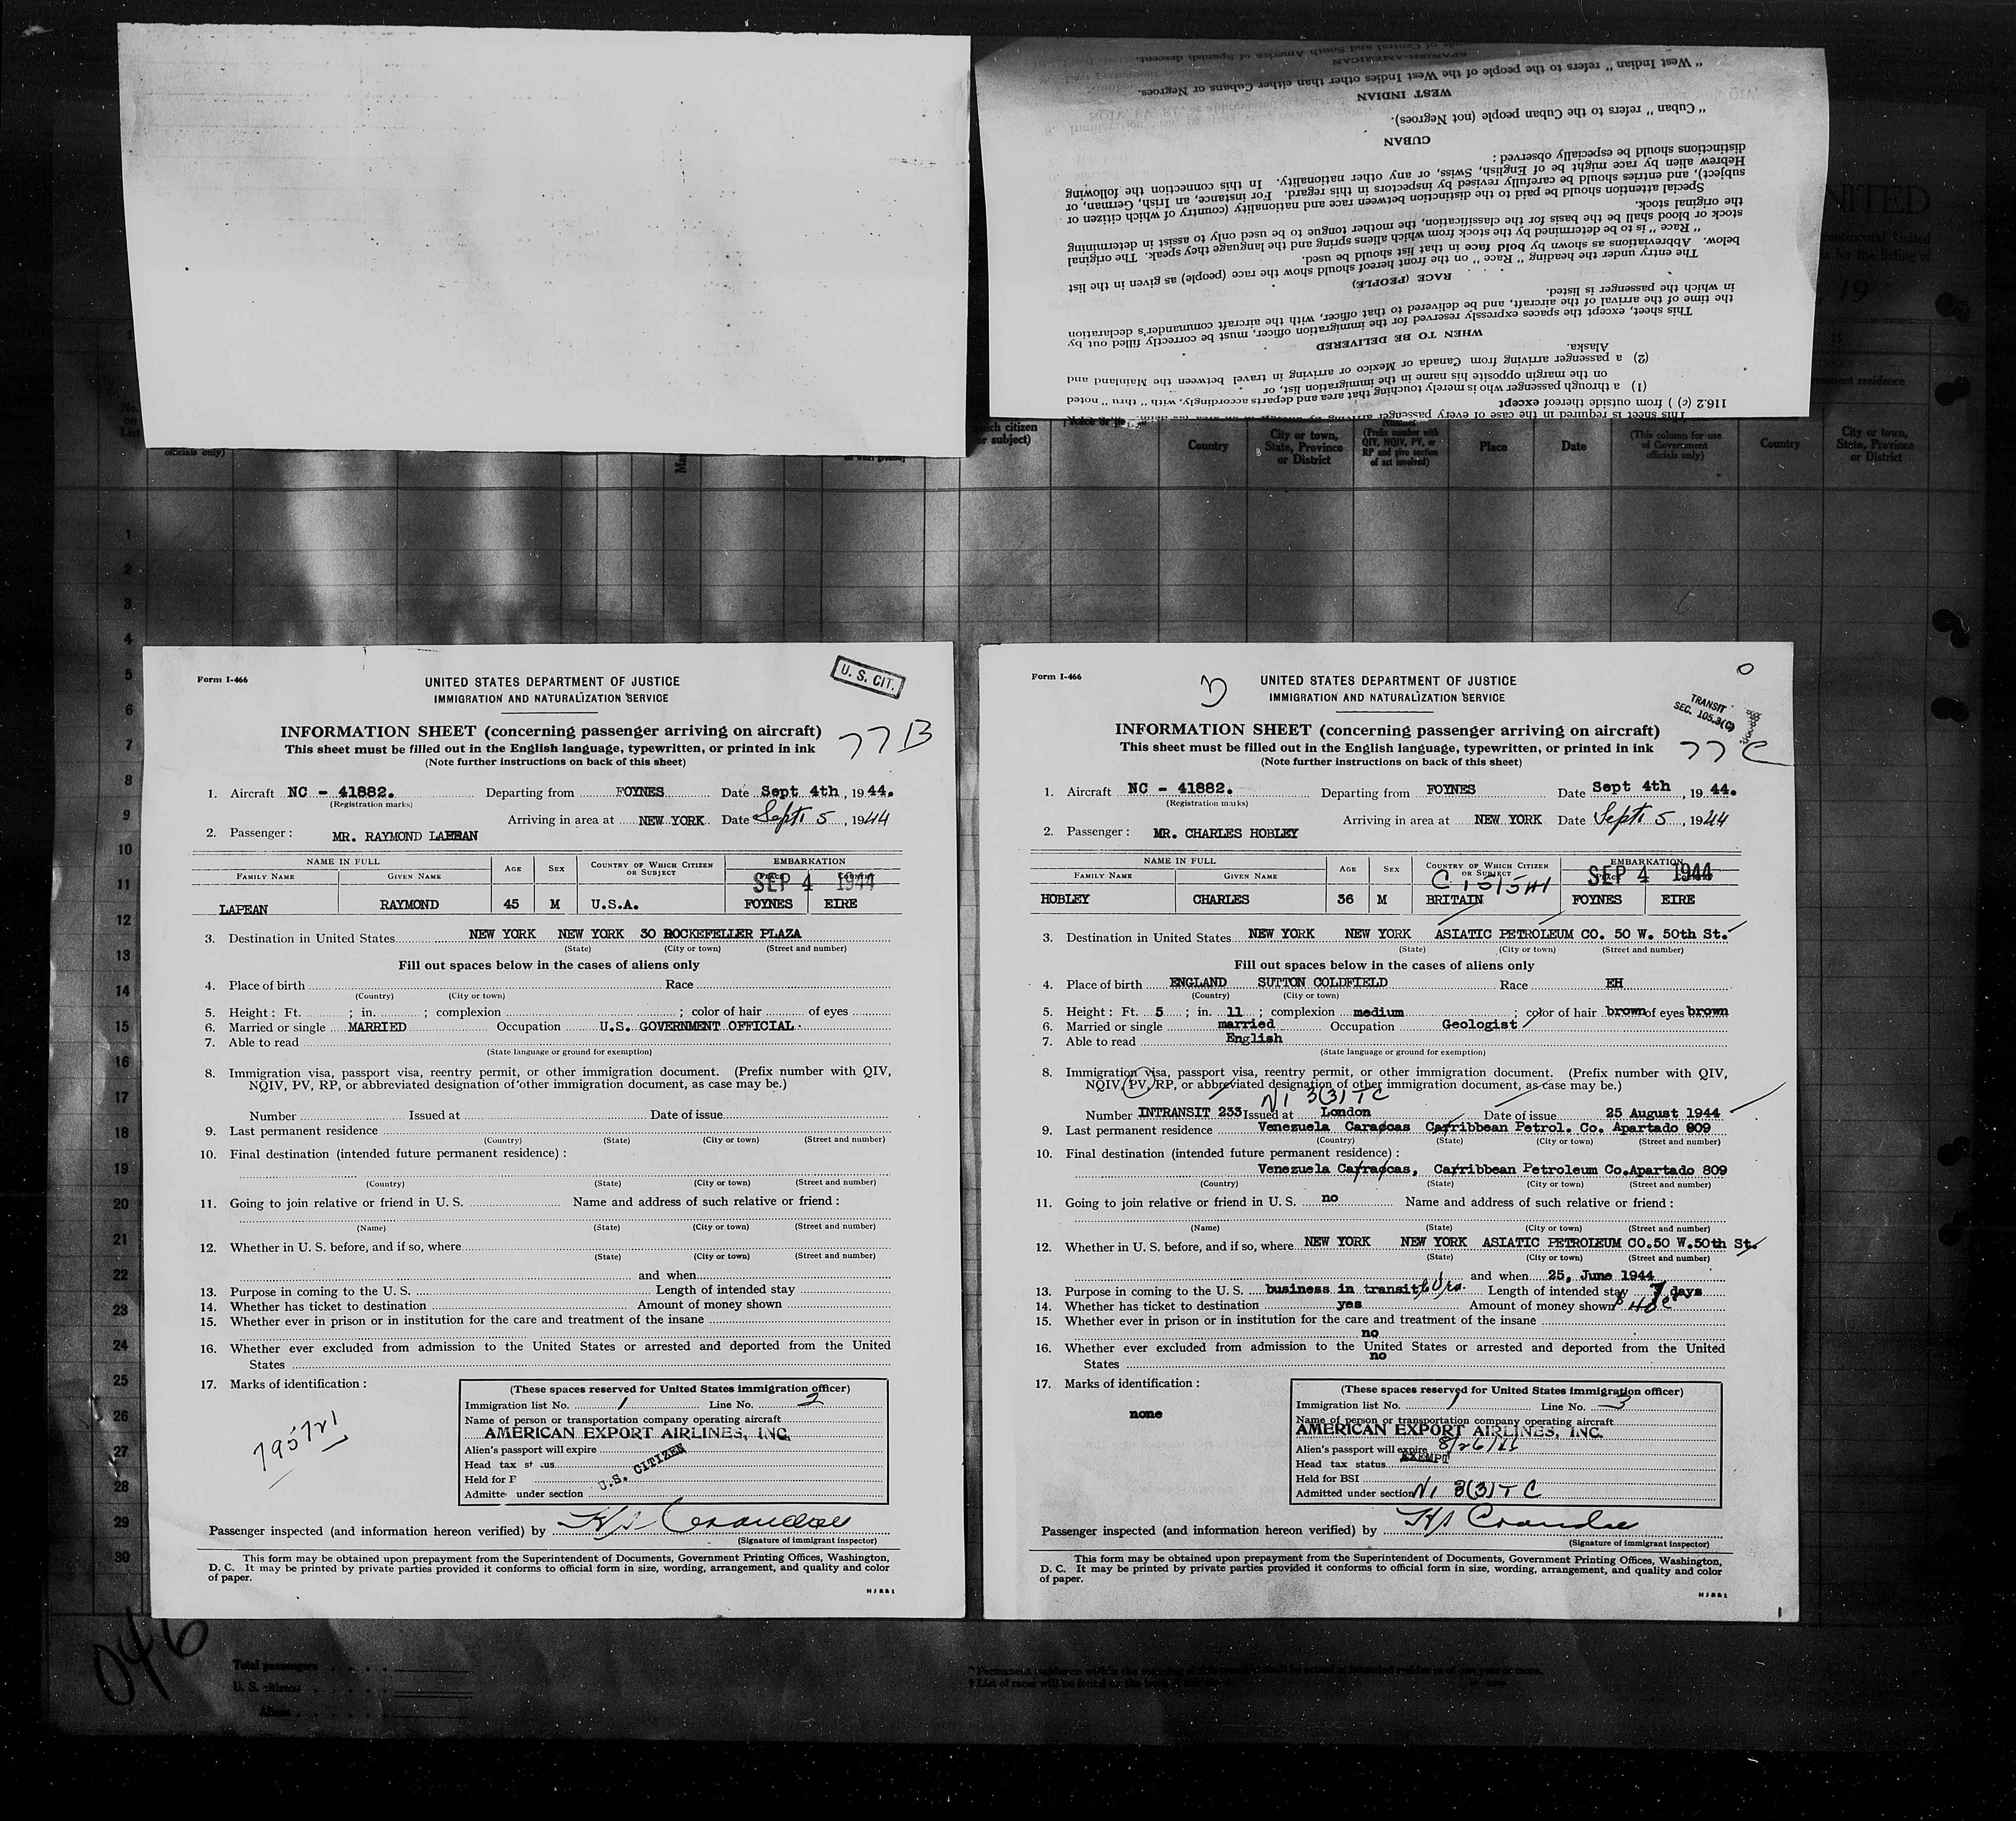 " West Indian " refers to the people of the West Indies other than either Cubans or Negroes.
WEST INDIAN
" Cuban " refers to the Cuban people (not Negroes).
CUBAN
distinctions should be especially observed :
Hebrew alien by race might be of English, Swiss, or any other nationality. In this connection the following
subject), and entries should be carefully revised by inspectors in this regard. For instance, an Irish, German, or
Special attention should be paid to the distinction between race and nationality (country of which citizen or
the original stock.
stock or blood shall be the basis for the classification, the mother tongue to be used only to assist in determining
" Race " is to be determined by the stock from which aliens spring and the language they speak. The original
below. Abbreviations as shown by bold face in that list should be used.
The entry under the heading " Race " on the front hereof should show the race (people) as given in the list
RACE (PEOPLE)
in which the passenger is listed.
the time of the arrival of the aircraft, and be delivered to that officer, with the aircraft commander's declaration
This sheet, except the spaces expressly reserved for the immigration officer, must be correctly filled out by
WHEN TO BE DELIVERED
Alaska.
(2) a passenger arriving from Canada or Mexico or arriving in travel between the Mainland and
on the margin opposite his name in the immigration list, or
(1) a through passenger who is merely touching that area and departs accordingly, with " thru " noted
116.2 (c) ) from outside thereof except
This sheet is required in the case of every passenger
NITED
continental United
for the listing of
, 19
permanent residence
officials only)
which citizen
or subject)
Country
City or town,
State, Province
or District
(Prefix number with
QIV, NQIV, PV, or
RP and give section
of act involved)
Place
Date
(This column for use
of Government
officials only)
Country
City or town,
State, Province
or District
1
2
3
4
5
6
7
8
9
10
11
12
13
14
15
16
17
18
19
20
21
22
23
24
25
26
27
28
29
30
Form I-466
UNITED STATES DEPARTMENT OF JUSTICE
IMMIGRATION AND NATURALIZATION SERVICE
U. S. CIT.
INFORMATION SHEET (concerning passenger arriving on aircraft)
This sheet must be filled out in the English language, typewritten, or printed in ink
(Note further instructions on back of this sheet)
77 B
1. Aircraft NC - 41882. Departing from FOYNES Date Sept 4th , 1944.
(Registration marks)
Arriving in area at NEW YORK Date Sept. 5 , 1944
2. Passenger : MR. RAYMOND LAPEAN
NAME IN FULL AGE SEX COUNTRY OF WHICH CITIZEN OR SUBJECT EMBARKATION
FAMILY NAME GIVEN NAME
SEP 4 1944
LAPEAN RAYMOND 45 M U.S.A. FOYNES EIRE
3. Destination in United States NEW YORK NEW YORK 30 ROCKEFELLER PLAZA
(State) (City or town) (Street and number)
Fill out spaces below in the cases of aliens only
4. Place of birth Race
(Country) (City or town)
5. Height : Ft. ; in. ; complexion ; color of hair of eyes
6. Married or single MARRIED Occupation U.S. GOVERNMENT OFFICIAL.
7. Able to read
(State language or ground for exemption)
8. Immigration visa, passport visa, reentry permit, or other immigration document. (Prefix number with QIV,
NQIV, PV, RP, or abbreviated designation of other immigration document, as case may be.)
Number Issued at Date of issue
9. Last permanent residence
(Country) (State) (City or town) (Street and number)
10. Final destination (intended future permanent residence) :
(Country) (State) (City or town) (Street and number)
11. Going to join relative or friend in U. S. Name and address of such relative or friend :
(Name) (State) (City or town) (Street and number)
12. Whether in U. S. before, and if so, where
(State) (City or town) (Street and number)
and when
13. Purpose in coming to the U. S. Length of intended stay
14. Whether has ticket to destination Amount of money shown
15. Whether ever in prison or in institution for the care and treatment of the insane
16. Whether ever excluded from admission to the United States or arrested and deported from the United
States
17. Marks of identification :
795721
(These spaces reserved for United States immigration officer)
Immigration list No. 1 Line No. 2
Name of person or transportation company operating aircraft
AMERICAN EXPORT AIRLINES, INC.
Alien's passport will expire
Head tax status
Held for
U.S. CITIZEN
Admitted under section
Passenger inspected (and information hereon verified) by
(Signature of immigrant inspector)
This form may be obtained upon prepayment from the Superintendent of Documents, Government Printing Offices, Washington,
D. C. It may be printed by private parties provided it conforms to official form in size, wording, arrangement, and quality and color
of paper.
Form I-466
UNITED STATES DEPARTMENT OF JUSTICE
IMMIGRATION AND NATURALIZATION SERVICE
TRANSIT
SEC. 105.3(C)
INFORMATION SHEET (concerning passenger arriving on aircraft)
This sheet must be filled out in the English language, typewritten, or printed in ink
(Note further instructions on back of this sheet)
77 C
1. Aircraft NC - 41882. Departing from FOYNES Date Sept 4th , 1944.
(Registration marks)
Arriving in area at NEW YORK Date Sept. 5 , 1944
2. Passenger : MR. CHARLES HOBLEY
NAME IN FULL AGE SEX COUNTRY OF WHICH CITIZEN OR SUBJECT EMBARKATION
FAMILY NAME GIVEN NAME
SEP 4 1944
HOBLEY CHARLES 36 M BRITAIN FOYNES EIRE
3. Destination in United States NEW YORK NEW YORK ASIATIC PETROLEUM CO. 50 W. 50th St.
(State) (City or town) (Street and number)
Fill out spaces below in the cases of aliens only
4. Place of birth ENGLAND SUTTON COLDFIELD Race EH
(Country) (City or town)
5. Height : Ft. 5 ; in. 11 ; complexion medium ; color of hair brown of eyes brown
6. Married or single married Occupation Geologist
7. Able to read English
(State language or ground for exemption)
8. Immigration visa, passport visa, reentry permit, or other immigration document. (Prefix number with QIV,
NQIV, PV, RP, or abbreviated designation of other immigration document, as case may be.)
NI 3(3) TC
Number INTRANSIT 233 Issued at London Date of issue 25 August 1944
9. Last permanent residence Venezuela Caraccas Carribbean Petrol. Co. Apartado 809
(Country) (State) (City or town) (Street and number)
10. Final destination (intended future permanent residence) :
Venezuela Carraccas, Carribbean Petroleum Co.Apartado 809
(Country) (State) (City or town) (Street and number)
11. Going to join relative or friend in U. S. no Name and address of such relative or friend :
(Name) (State) (City or town) (Street and number)
12. Whether in U. S. before, and if so, where NEW YORK NEW YORK ASIATIC PETROLEUM CO.50 W.50th St.
(State) (City or town) (Street and number)
and when 25, June 1944
13. Purpose in coming to the U. S. business in transit Length of intended stay 7 days
14. Whether has ticket to destination yes Amount of money shown
15. Whether ever in prison or in institution for the care and treatment of the insane
no
16. Whether ever excluded from admission to the United States or arrested and deported from the United
States no
17. Marks of identification :
none
(These spaces reserved for United States immigration officer)
Immigration list No. 1 Line No. 3
Name of person or transportation company operating aircraft
AMERICAN EXPORT AIRLINES, INC.
Alien's passport will expire
Head tax status EXEMPT
Held for BSI
Admitted under section NI 3(3) TC
Passenger inspected (and information hereon verified) by
(Signature of immigrant inspector)
This form may be obtained upon prepayment from the Superintendent of Documents, Government Printing Offices, Washington,
D. C. It may be printed by private parties provided it conforms to official form in size, wording, arrangement, and quality and color
of paper.
046
Total passengers
U. S. citizens
Aliens